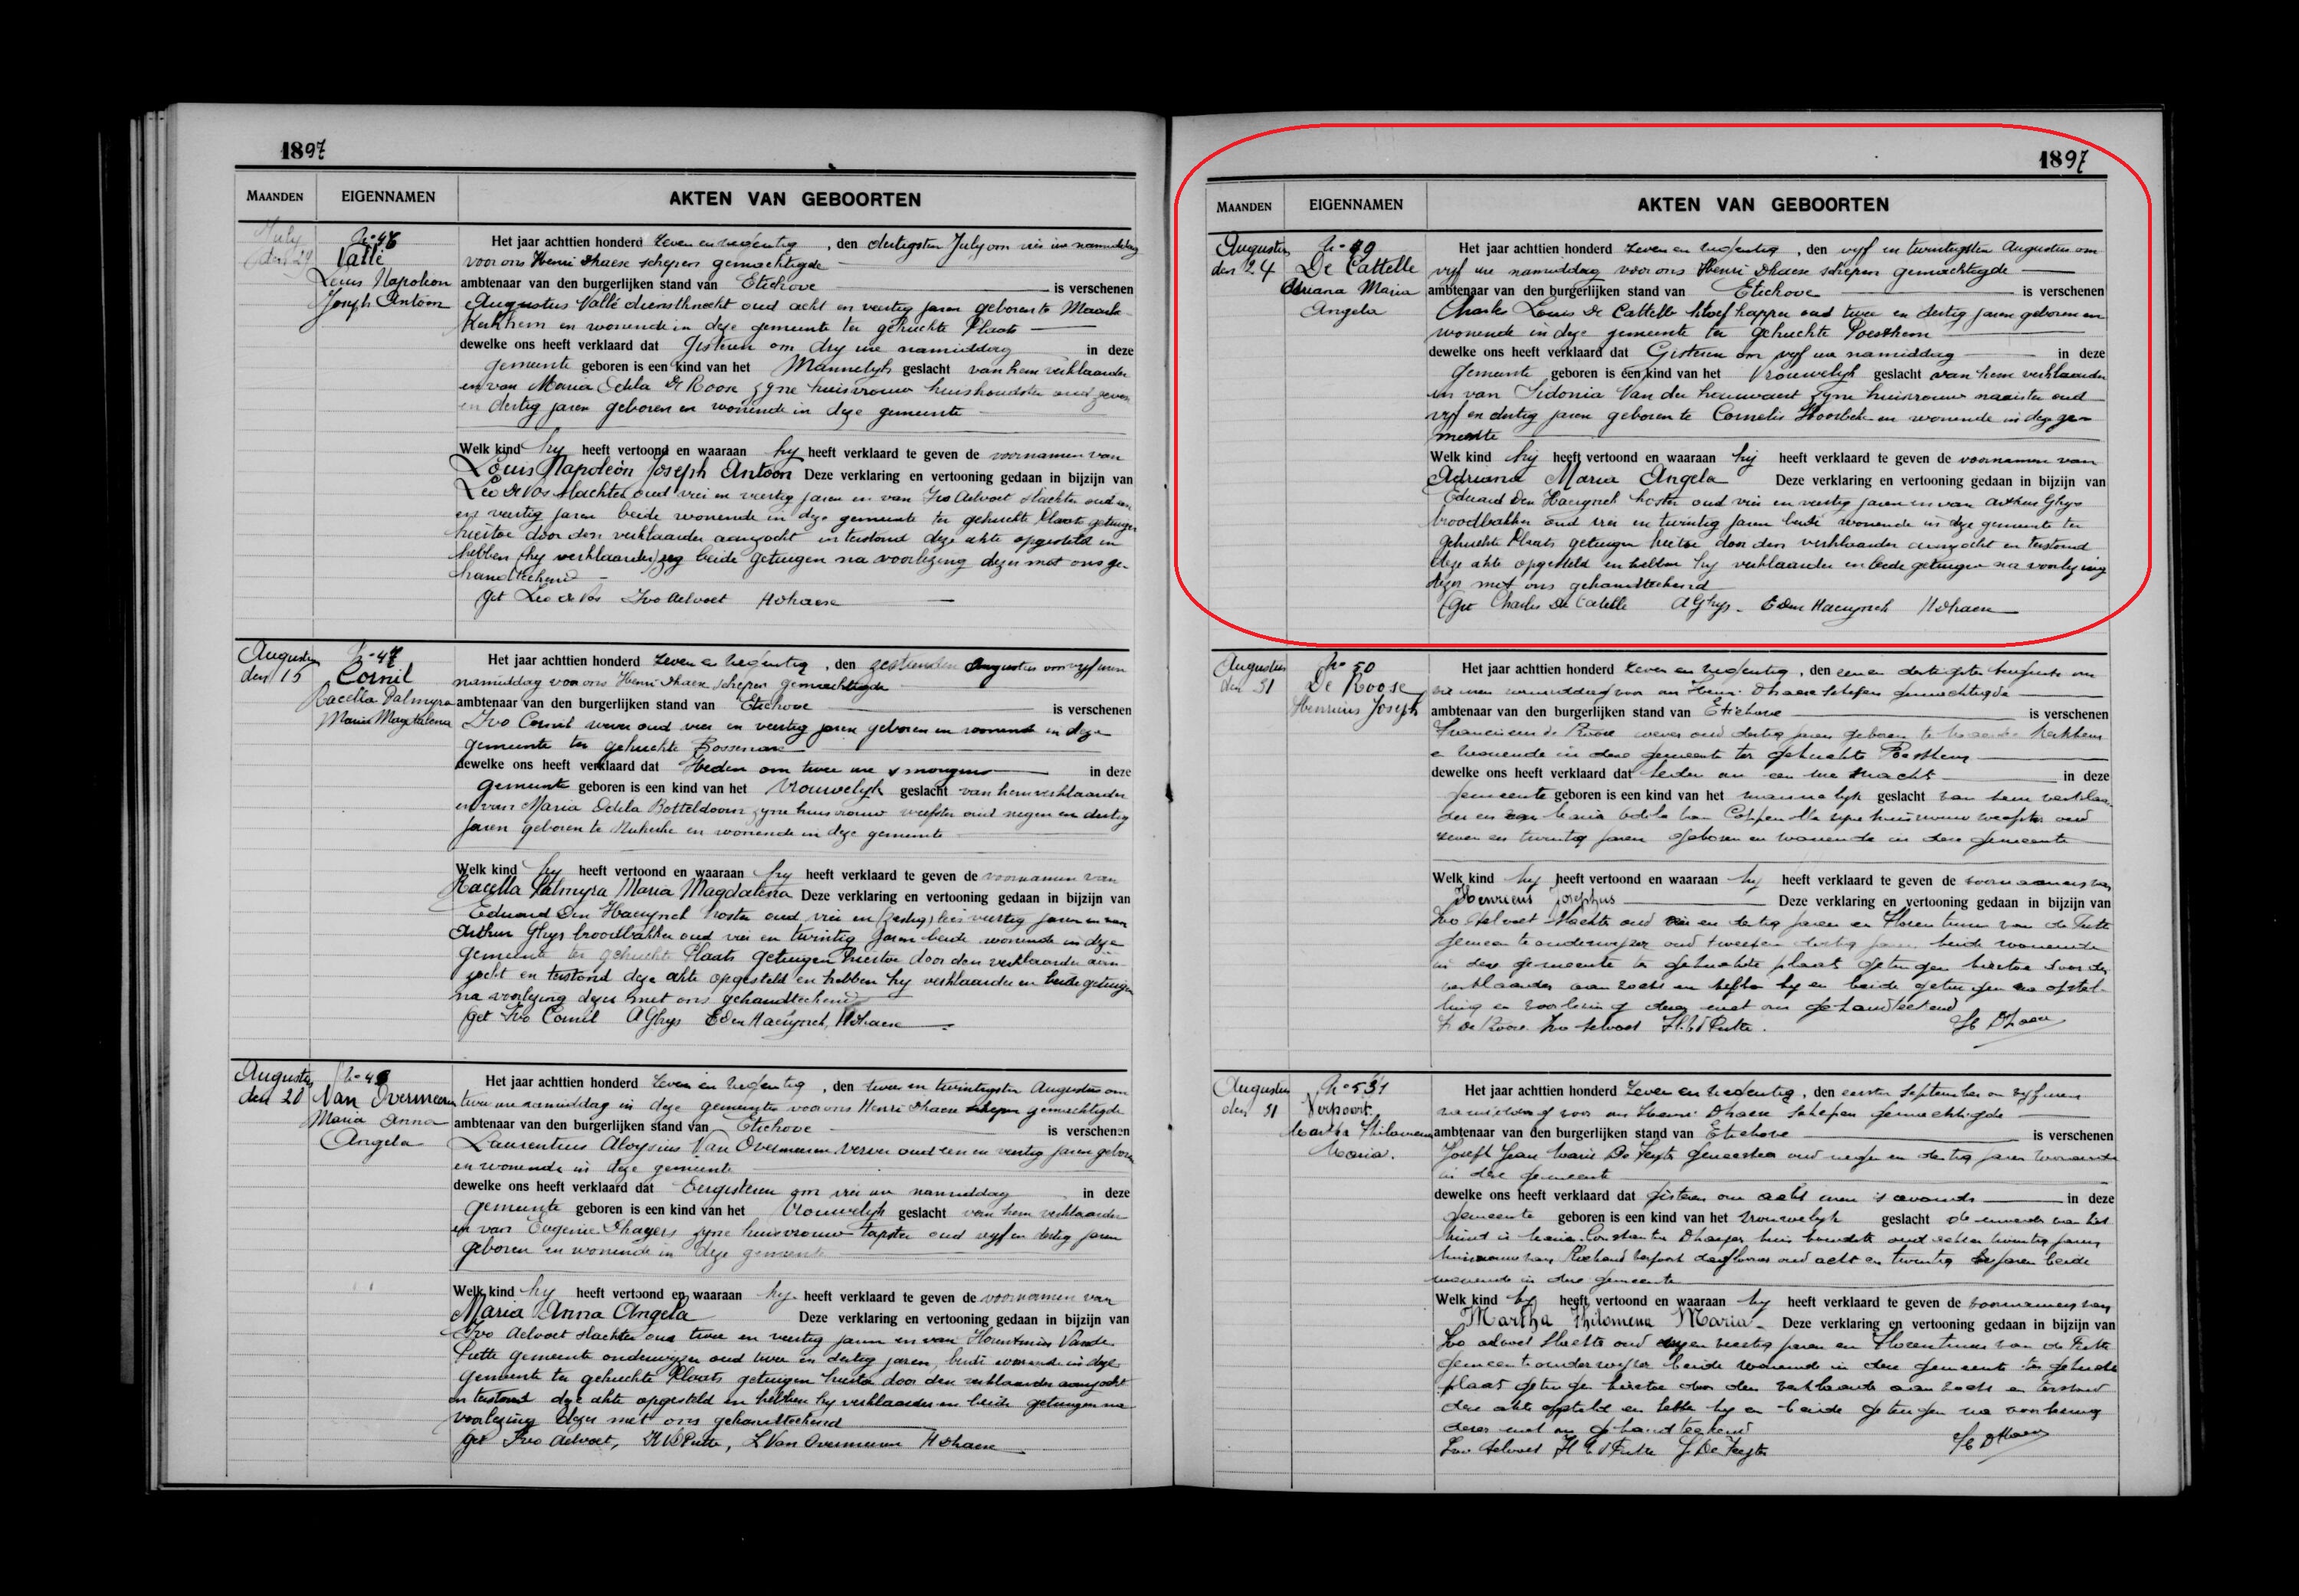 1897
MAANDEN EIGENNAMEN AKTEN VAN GEBOORTEN
July den 29
No 46
Vallé
Louis Napoleon
Joseph Antoon
Het jaar achttien honderd zeven en negentig, den dertigsten July om vier ure namiddag
voor ons Henri Dhaese schepen gemachtigde
ambtenaar van den burgerlijken stand van Etichove is verschenen
Augustus Vallé dienstknecht oud acht en veertig jaren geboren te Maarke
Kerkhem en wonende in deze gemeente ter gehuchte Plaats
dewelke ons heeft verklaard dat Gisteren om dry ure namiddag in deze
gemeente geboren is een kind van het Mannelijk geslacht van hem verklaarder
en van Maria Odila De Roose zyne huisvrouw huishoudster oud zeven
en dertig jaren geboren en wonende in deze gemeente
Welk kind hy heeft vertoond en waaraan hy heeft verklaard te geven de voornamen van
Louis Napoleon Joseph Antoon Deze verklaring en vertooning gedaan in bijzijn van
Leo De Vos slachter oud vier en veertig jaren en van Ivo Aelvoet slachter oud
en veertig jaren beide wonende in deze gemeente ter gehuchte Plaats getuigen
hiertoe door den verklaarder aanzocht en terstond deze akte opgesteld en
hebben (hy verklaarder) zeg beide getuigen na voorlezing dezer met ons ge-
handteekend
Get Leo de Vos Ivo Aelvoet H Dhaese
Augustus
den 15
No 47
Cornil
Racella Palmyra
Maria Magdalena
Het jaar achttien honderd zeven en negentig, den zestienden Augustus om vyf uren
namiddag voor ons Henri Dhaese schepen gemachtigde
ambtenaar van den burgerlijken stand van Etichove is verschenen
Ivo Cornil wever oud vier en veertig jaren geboren en wonende in deze
gemeente ter gehuchte Bossenare
dewelke ons heeft verklaard dat Heden om twee ure s morgens in deze
gemeente geboren is een kind van het Vrouwelijk geslacht van hem verklaarder
en van Maria Odila Botteldoorn zyne huisvrouw weefster oud negen en dertig
jaren geboren te Nukerke en wonende in deze gemeente
Welk kind hy heeft vertoond en waaraan hy heeft verklaard te geven de voornamen van
Racella Palmyra Maria Magdalena Deze verklaring en vertooning gedaan in bijzijn van
Eduard Den Haeynck koster oud vier en (zestig) lees veertig jaren en van
Arthur Ghys broodbakker oud vier en twintig jaren beide wonende in deze
gemeente ter gehuchte Plaats getuigen hiertoe door den verklaarder aan-
zocht en terstond deze akte opgesteld en hebben hy verklaarder en beide getuigen
na voorlezing dezer met ons gehandteekend
(get Ivo Cornil A Ghys E Den Haeynck, H Dhaese
Augustus
den 20
No 48
Van Overmeeren
Maria Anna
Angela
Het jaar achttien honderd zeven en negentig, den twee en twintigsten Augustus om
twee ure namiddag in deze gemeente voor ons Henri Dhaese schepen gemachtigde
ambtenaar van den burgerlijken stand van Etichove is verschenen
Laurentius Aloysius Van Overmeeren verver oud een en veertig jaren geboren
en wonende in deze gemeente
dewelke ons heeft verklaard dat Eergisteren om vier ure namiddag in deze
gemeente geboren is een kind van het Vrouwelijk geslacht van hem verklaarder
en van Eugenie Dhaeyers zyne huisvrouw tapster oud vyf en dertig jaren
geboren en wonende in deze gemeente
Welk kind hy heeft vertoond en waaraan hy heeft verklaard te geven de voornamen van
Maria Anna Angela Deze verklaring en vertooning gedaan in bijzijn van
Ivo Aelvoet slachter oud twee en veertig jaren en van Florentinus Vande
Putte gemeente onderwijzer oud twee en dertig jaren, beide wonende in deze
gemeente ter gehuchte Plaats getuigen hiertoe door den verklaarder aanzocht
en terstond deze akte opgesteld en hebben hy verklaarder en beide getuigen na
voorlezing dezer met ons gehandteekend
Get Ivo Aelvoet, Putte, L Van Overmeeren H Dhaese
1897
MAANDEN EIGENNAMEN AKTEN VAN GEBOORTEN
Augustus
den 24
No 49
De Cattelle
Adriana Maria
Angela
Het jaar achttien honderd zeven en negentig, den vyf en twintigsten Augustus om
vyf ure namiddag voor ons Henri Dhaese schepen gemachtigde
ambtenaar van den burgerlijken stand van Etichove is verschenen
Charles Louis De Cattelle kloefkapper oud twee en dertig jaren geboren en
wonende in deze gemeente ter gehuchte Poesthem
dewelke ons heeft verklaard dat Gisteren om vyf ure namiddag in deze
gemeente geboren is een kind van het Vrouwelijk geslacht van hem verklaarder
en van Sidonia Van der heuwaert zyne huisvrouw naaister oud
vyf en dertig jaren geboren te Cornelis Hoorebeke en wonende in deze ge-
meente
Welk kind hij heeft vertoond en waaraan hij heeft verklaard te geven de voornamen van
Adriana Maria Angela Deze verklaring en vertooning gedaan in bijzijn van
Eduard Den Haeynck koster oud vier en veertig jaren en van Arthur Ghys
broodbakker oud vier en twintig jaren beide wonende in deze gemeente ter
gehuchte Plaats getuigen hiertoe door den verklaarder aanzocht en terstond
deze akte opgesteld en hebben hy verklaarder en beide getuigen na voorlezing
dezer met ons gehandteekend
(Get Charles De Catelle A Ghys. E Den Haeynck H Dhaese
Augustus
den 31
No 50
De Roose
Henricus Joseph
Het jaar achttien honderd zeven en negentig, den een en dertigsten Augusti om
vier uren namiddag voor ons Henri Dhaese schepen gemachtigde
ambtenaar van den burgerlijken stand van Etichove is verschenen
Franciscus de Roose wever oud dertig jaren geboren te Maarke Kerkhem
en wonende in deze gemeente ter gehuchte Poesthem
dewelke ons heeft verklaard dat heden om een ure s'nachts in deze
gemeente geboren is een kind van het mannelijk geslacht van hem verklaar-
der en van Maria Odila Van zijne huisvrouw weefster oud
zeven en twintig jaren geboren en wonende in deze gemeente
Welk kind hij heeft vertoond en waaraan hij heeft verklaard te geven de voornamen van
Henricus Josephus Deze verklaring en vertooning gedaan in bijzijn van
Ivo Aelvoet slachter oud en dertig jaren en Florentinus van de Putte
gemeente onderwijzer oud twee en dertig jaren, beide wonende
in deze gemeente ter gehuchte plaats getuigen hiertoe door den
verklaarder aanzocht en heeft hij en beide getuigen na opstel-
ling en voorlezing dezer met ons gehandteekend
F. De Roose. Ivo Aelvoet Putte. H. Dhaese
Augustus
den 31
No 51
Verpoort
Martha Philomena
Maria.
Het jaar achttien honderd zeven en negentig, den eersten September om vijf uren
namiddag voor ons Henri Dhaese schepen gemachtigde
ambtenaar van den burgerlijken stand van Etichove is verschenen
Joseph Jean Marie De Feyter geneesheer oud negen en dertig jaren wonende
in deze gemeente
dewelke ons heeft verklaard dat gisteren om acht uren 's avonds in deze
gemeente geboren is een kind van het vrouwelijk geslacht de moeder van het
kind is Maria Constantia Dhaeyer huishoudster oud acht en twintig jaren
huisvrouw van Richard Verpoort oud acht en twintig jaren beide
wonende in deze gemeente
Welk kind hij heeft vertoond en waaraan hij heeft verklaard te geven de voornamen van
Martha Philomena Maria Deze verklaring en vertooning gedaan in bijzijn van
Ivo Aelvoet slachter oud veertig jaren en Florentinus van de Putte
gemeente onderwijzer beide wonende in deze gemeente ter gehuchte
plaats getuigen hiertoe door den verklaarder aanzocht en terstond
deze akte opgesteld en hebben hij en beide getuigen na voorlezing
dezer met ons gehandteekend
Ivo Aelvoet Putte J De Feyter H Dhaese